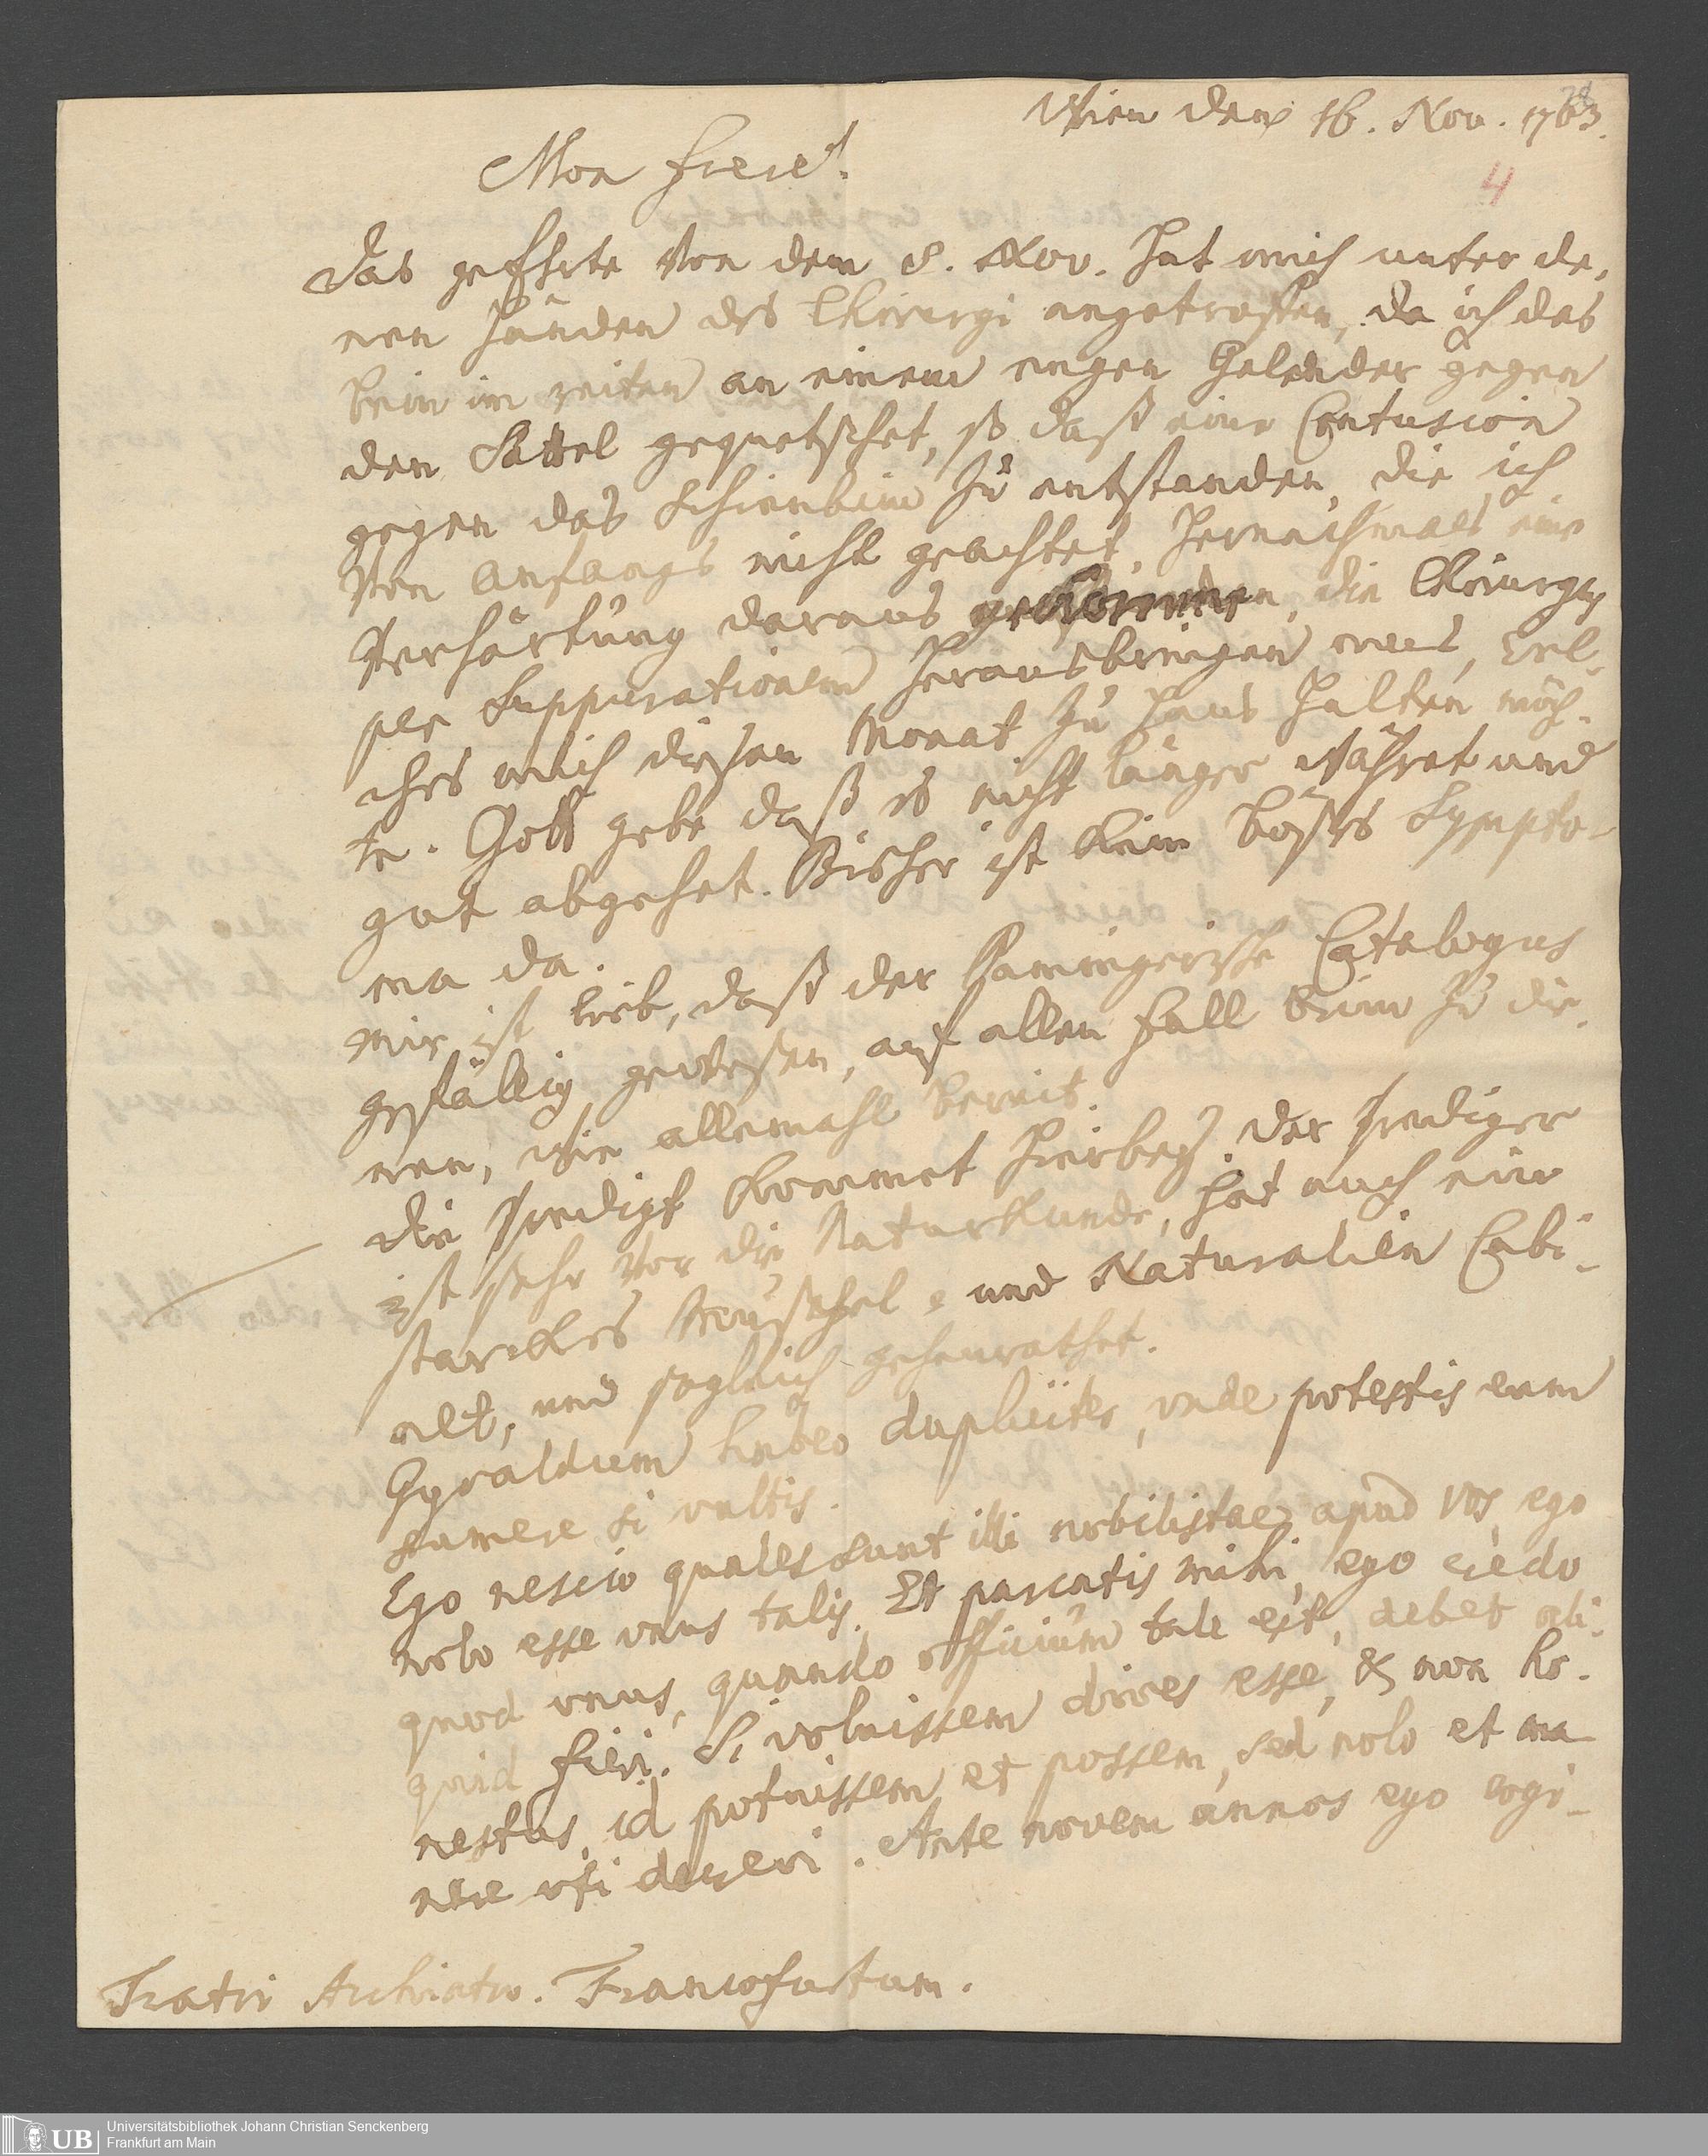 Wien den 16. Nov. 1763.
4
Mon frere!
Das geehrte von dem 8. Nov. hat mich unter de-
nen Händen des Chirurgi angetroffen, da ich das
bein im reiten an einem engen Gelender gegen
den Sattel gequetschet, so daß eine Contusion
gegen das Schienbein zu entstanden, die ich
von Anfangs nicht geachtet, hernachmals eine
Verhärtung daraus die Chirurgus
per Suppurationem herausbringen mus, wel-
ches mich diesen Monat zu Haus halten möch-
te. Gott gebe daß es nicht länger währet und
gut abgehet. Bisher ist kein böses Sympto-
ma da.
Mir ist lieb, daß der Catalogus
gefällig gewesen, auf allen fall beim zu die-
nen, wie allemahl bereit.
Die Predigt kommet hierbey. Der Prediger
ist sehr vor die Naturkunde, hat auch ein
starckes Muschel- und Naturalien Cabi-
net, und sogleich geheurathet.
Gyraldum habeo dupliciter, unde potestis eum
sumere si vultis.
Ego nescio quales sunt illi nobilistae apud vos, ego
nolo esse unus talis. Et parcatis mihi, ego credo
quod unus, quando officium tale est, debet ali-
quid fieri. Si voluissem dives esse, & non ho-
nestus, id potuissem et possem, sed nolo et ma-
nere uti decrevi. Ante novem annos ego cogi-
Fratri Archiatro. Francofurtum.
UB
Universitätsbibliothek Johann Christian Senckenberg
Frankfurt am Main